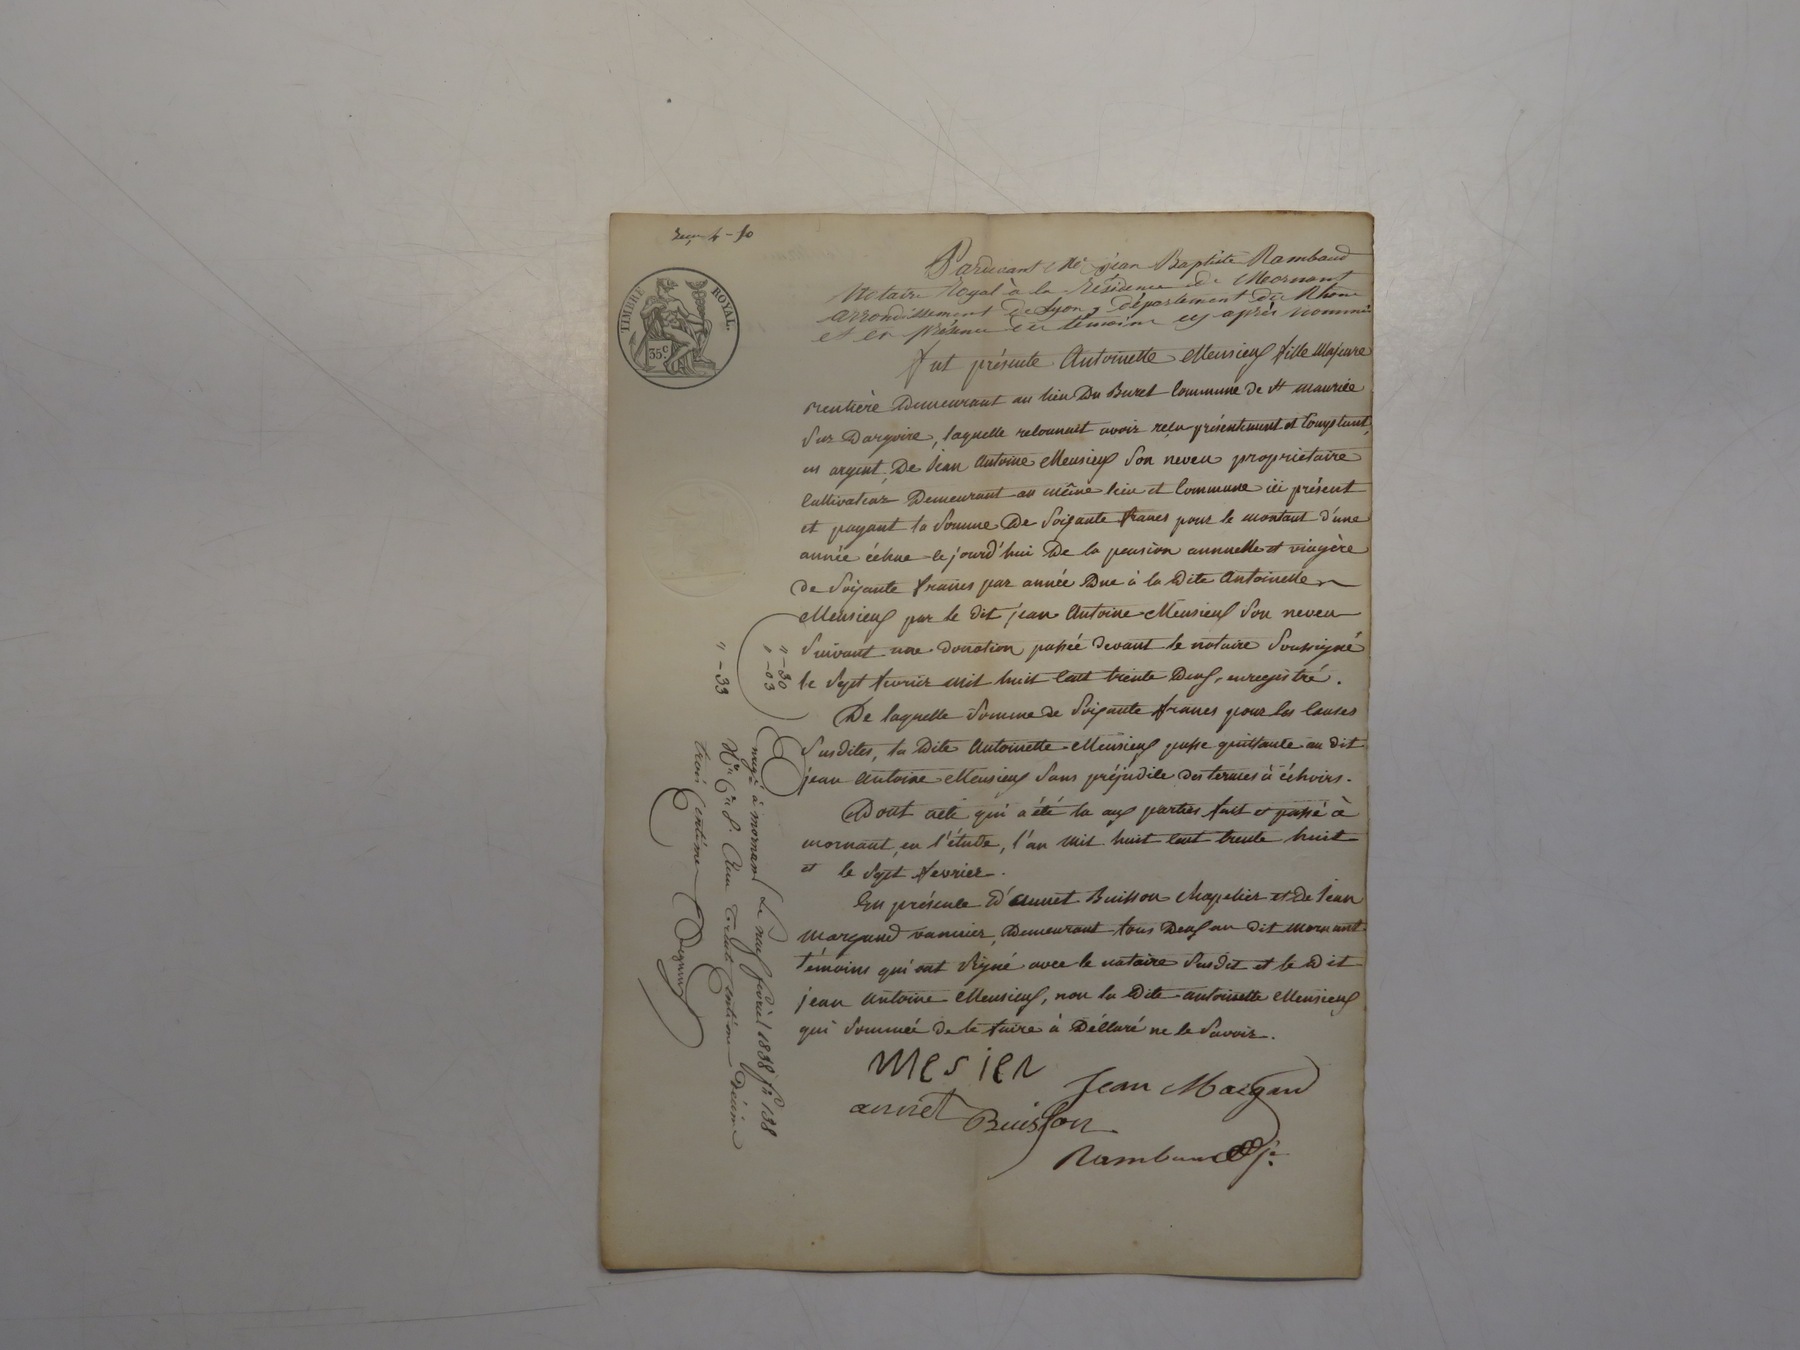 Reçu 4-50
TIMBRE ROYAL.
35 c
Pardevant Me jean Baptiste Rambaud
Notaire Royal à la Résidence de Mornant
arrondissement de Lyon, département du Rhône
et en présence des témoins cy après nommés
fut présente Antoinette Meusieux fille majeure
rentière demeurant au lieu Du Buret Commune de St maurice
sur Dargoire, laquelle reconnait avoir reçu présentement et Comptant,
en argent, De Jean Antoine Meusieux son neveu propriétaire
Cultivateur Demeurant au même lieu et Commune ici présent
et payant la somme De soixante francs pour le montant d'une
année échue cejourd'hui De la pension annuelle et viagère
de soixante francs par année Due à la Dite Antoinette
Meusieux par le dit jean Antoine Meusieux son neveu
suivant une donation passée devant le notaire soussigné
le sept fevrier mil huit Cent trente Deux, enregistré.
De laquelle somme de soixante francs pour les Causes
susdites, la Dite Antoinette Meusieux passe quittance au dit
jean Antoine Meusieux sans préjudice des termes à échoirs.
Dont acte qui a été lu aux parties fait et passé à
mornant, en l'étude, l'an mil huit Cent trente huit
et le sept fevrier.
En présence d'annet Buisson chapelier et de Jean
Margand vannier, Demeurant tous Deux au dit mornant
témoins qui ont signé avec le notaire susdit et le dit
jean Antoine Meusieux, non la Dite antoinette Meusieux
qui sommée de le faire à Déclaré ne le savoir.
Mesier
Jean Margand
annet Buisson
Rambaud je
" - 30
" - 03
" - 33
Enregé à mornant Le neuf février 1838 fo 138
Vo Ce 8. Reçu trente Centimes décime
trois Centimes